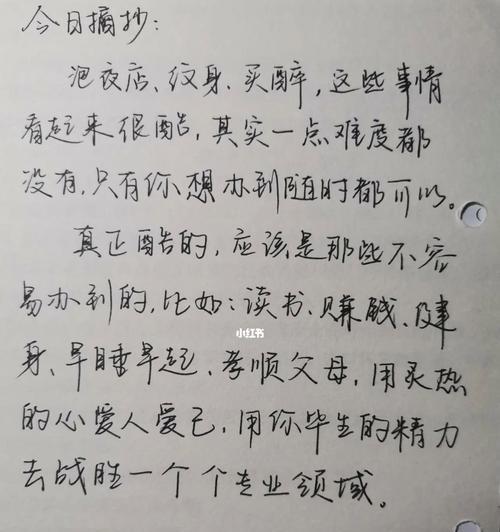 今日摘抄:
泡夜店、纹身、买醉,这些事情
看起来很酷,其实一点难度都
没有,只有你想办到随时都可以。
真正酷的,应该是那些不容
易办到的,比如:读书、赚钱、健
身、早睡早起、孝顺父母,用炙热
的心爱人爱己,用你毕生的精力
去战胜一个个专业领域。
小红书